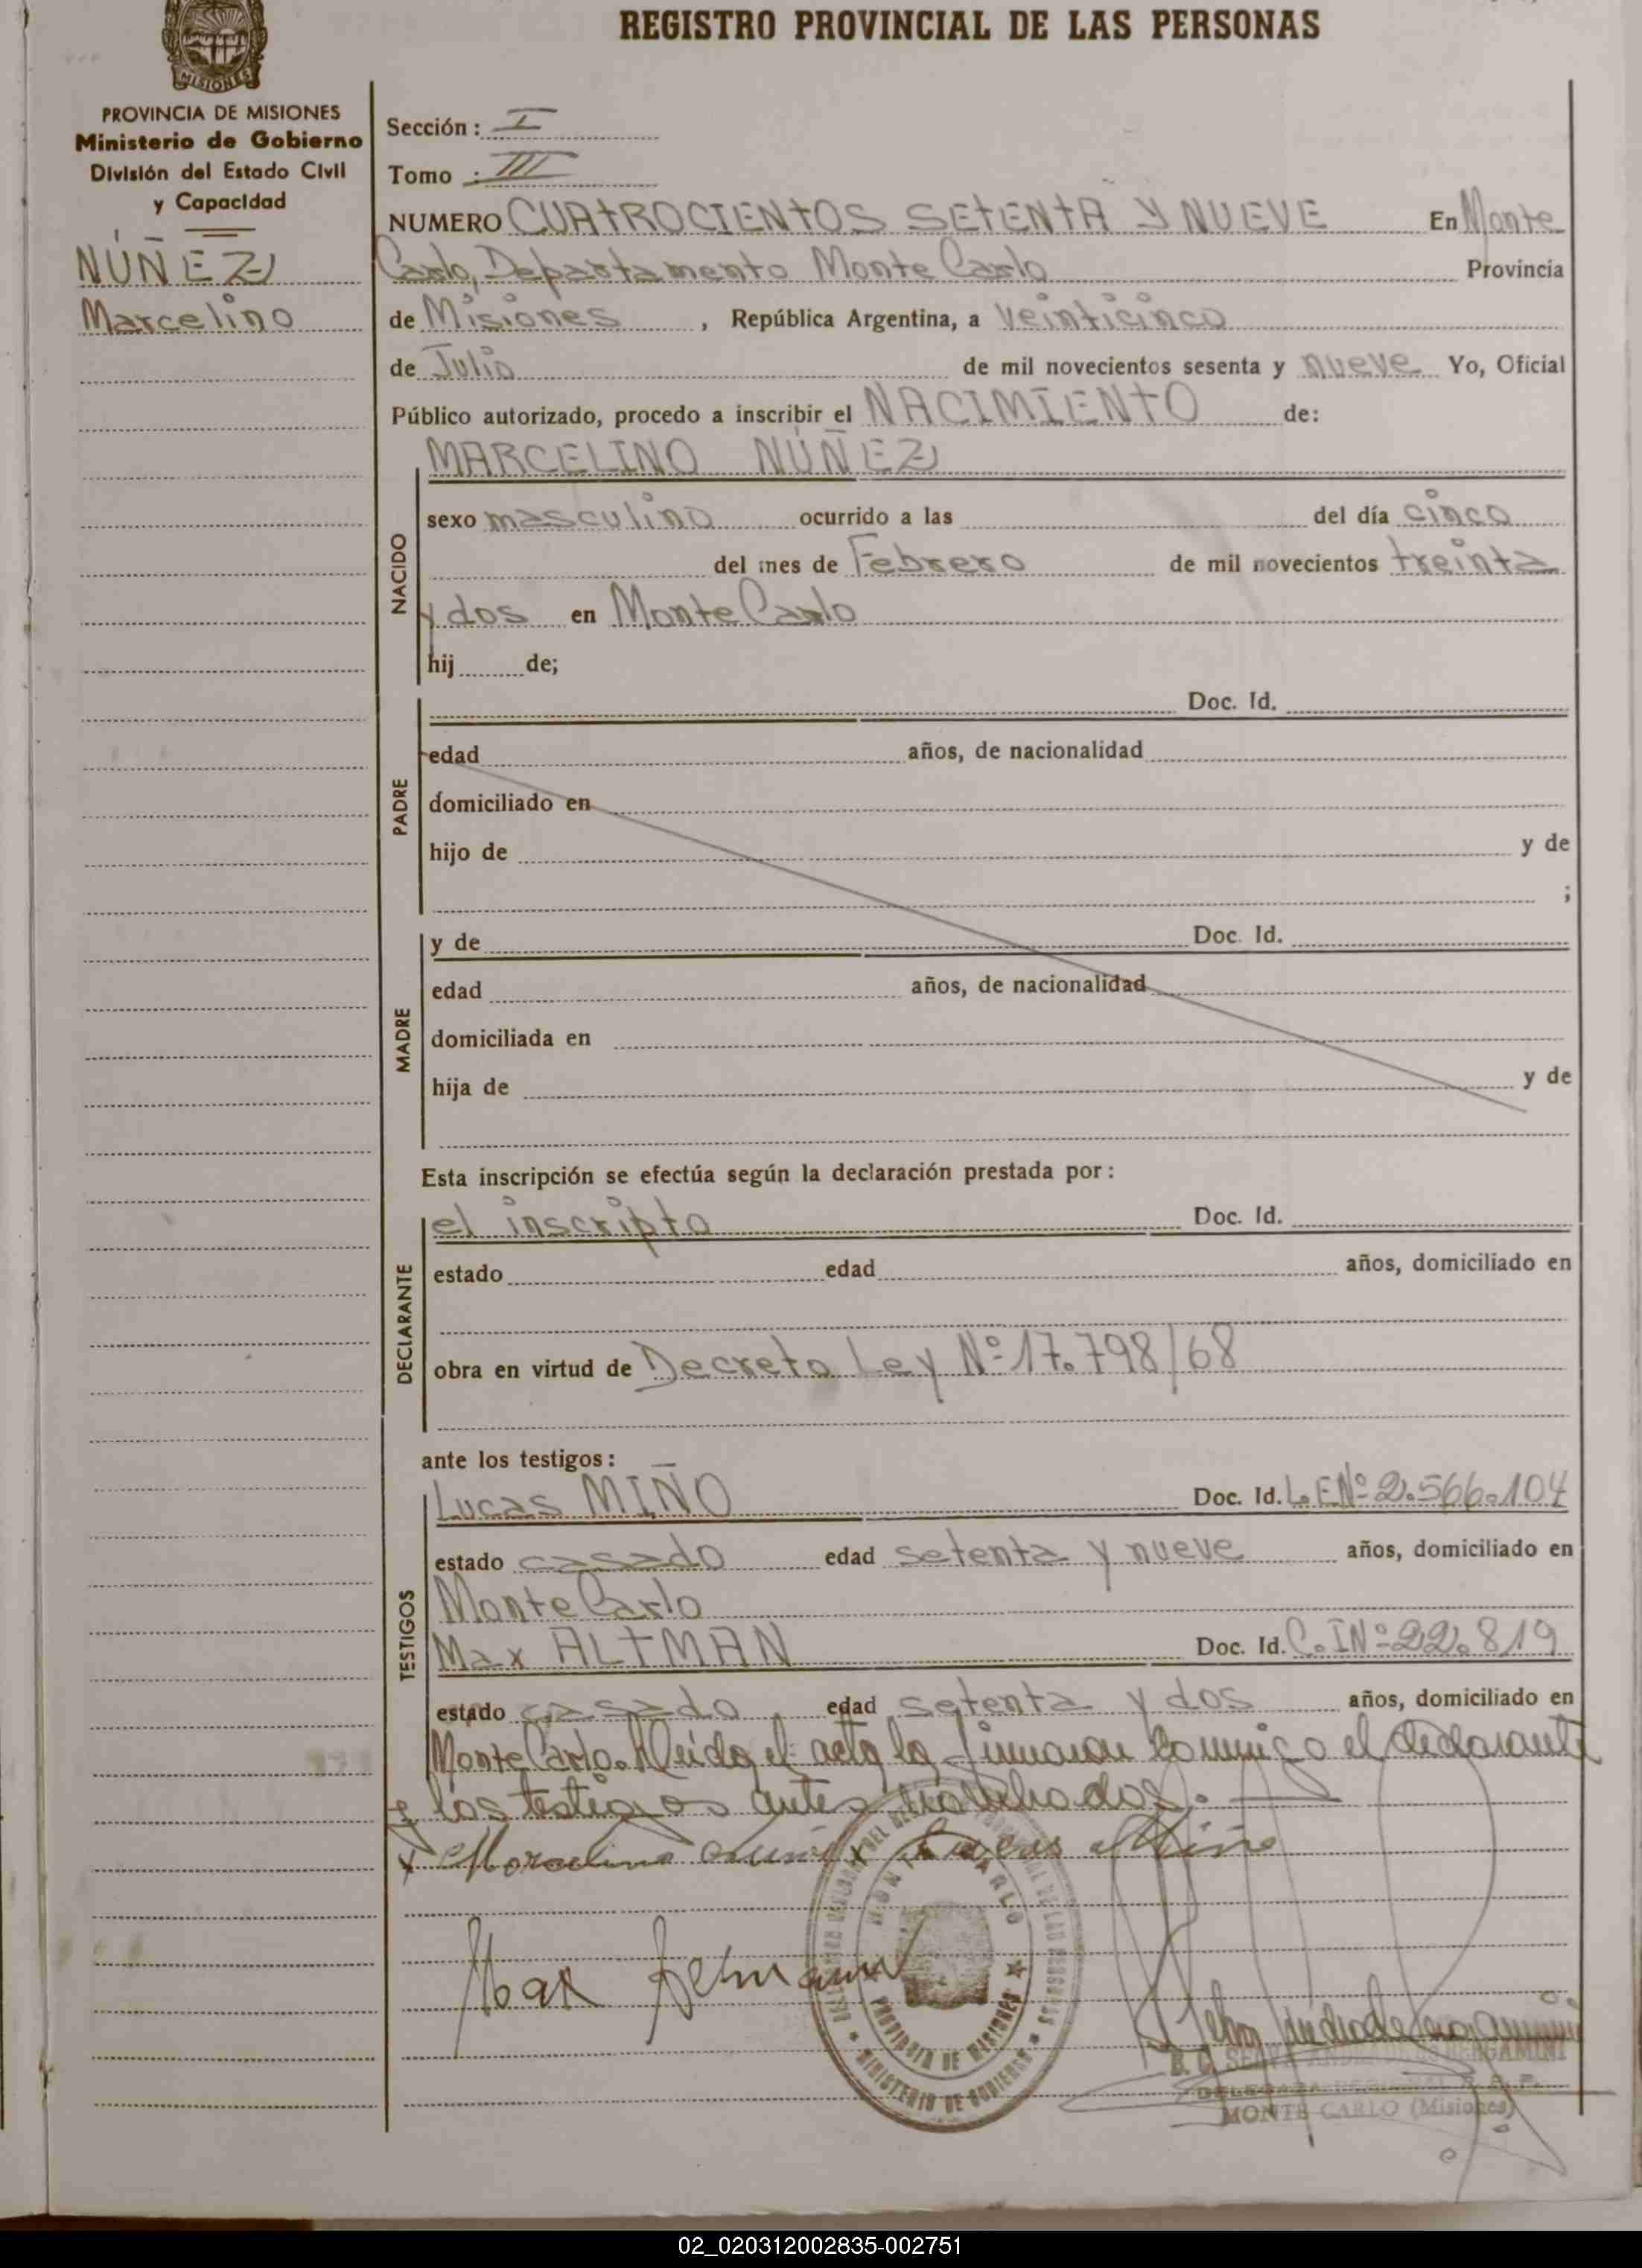 REGISTRO PROVINCIAL DE LAS PERSONAS
MISIONES
PROVINCIA DE MISIONES
Ministerio de Gobierno
División del Estado Civil
y Capacidad
NÚÑEZ
Marcelino
Sección : I
Tomo : III
NUMERO CUATROCIENTOS SETENTA Y NUEVE En Monte
Carlo, Departamento Monte Carlo Provincia
de Misiones , República Argentina, a veinticinco
de Julio de mil novecientos sesenta y nueve Yo, Oficial
Público autorizado, procedo a inscribir el NACIMIENTO de:
MARCELINO NÚÑEZ
NACIDO
sexo masculino ocurrido a las del día cinco
del mes de Febrero de mil novecientos treinta
y dos en Monte Carlo
hij de;
PADRE
Doc. Id.
edad años, de nacionalidad
domiciliado en
hijo de y de
;
MADRE
y de Doc. Id.
edad años, de nacionalidad
domiciliada en
hija de y de
Esta inscripción se efectúa según la declaración prestada por :
DECLARANTE
el inscripto Doc. Id.
estado edad años, domiciliado en
obra en virtud de Decreto Ley Nº 17.798/68
ante los testigos :
TESTIGOS
Lucas MIÑO Doc. Id. L.E Nº 2.566.104
estado casado edad setenta y nueve años, domiciliado en
Monte Carlo
Max ALTMAN Doc. Id. C.I Nº 22.819
estado casado edad setenta y dos años, domiciliado en
Monte Carlo. Leida el acta la firmaron conmigo el declarante
y los testigos antes nombrados.
Marcelino Lucas Miño
MONTE CARLO
PROVINCIA DE MISIONES
MINISTERIO DE GOBIERNO
Max
BERGAMINI
DELEGADA
MONTE CARLO (Misiones)
02_020312002835-002751